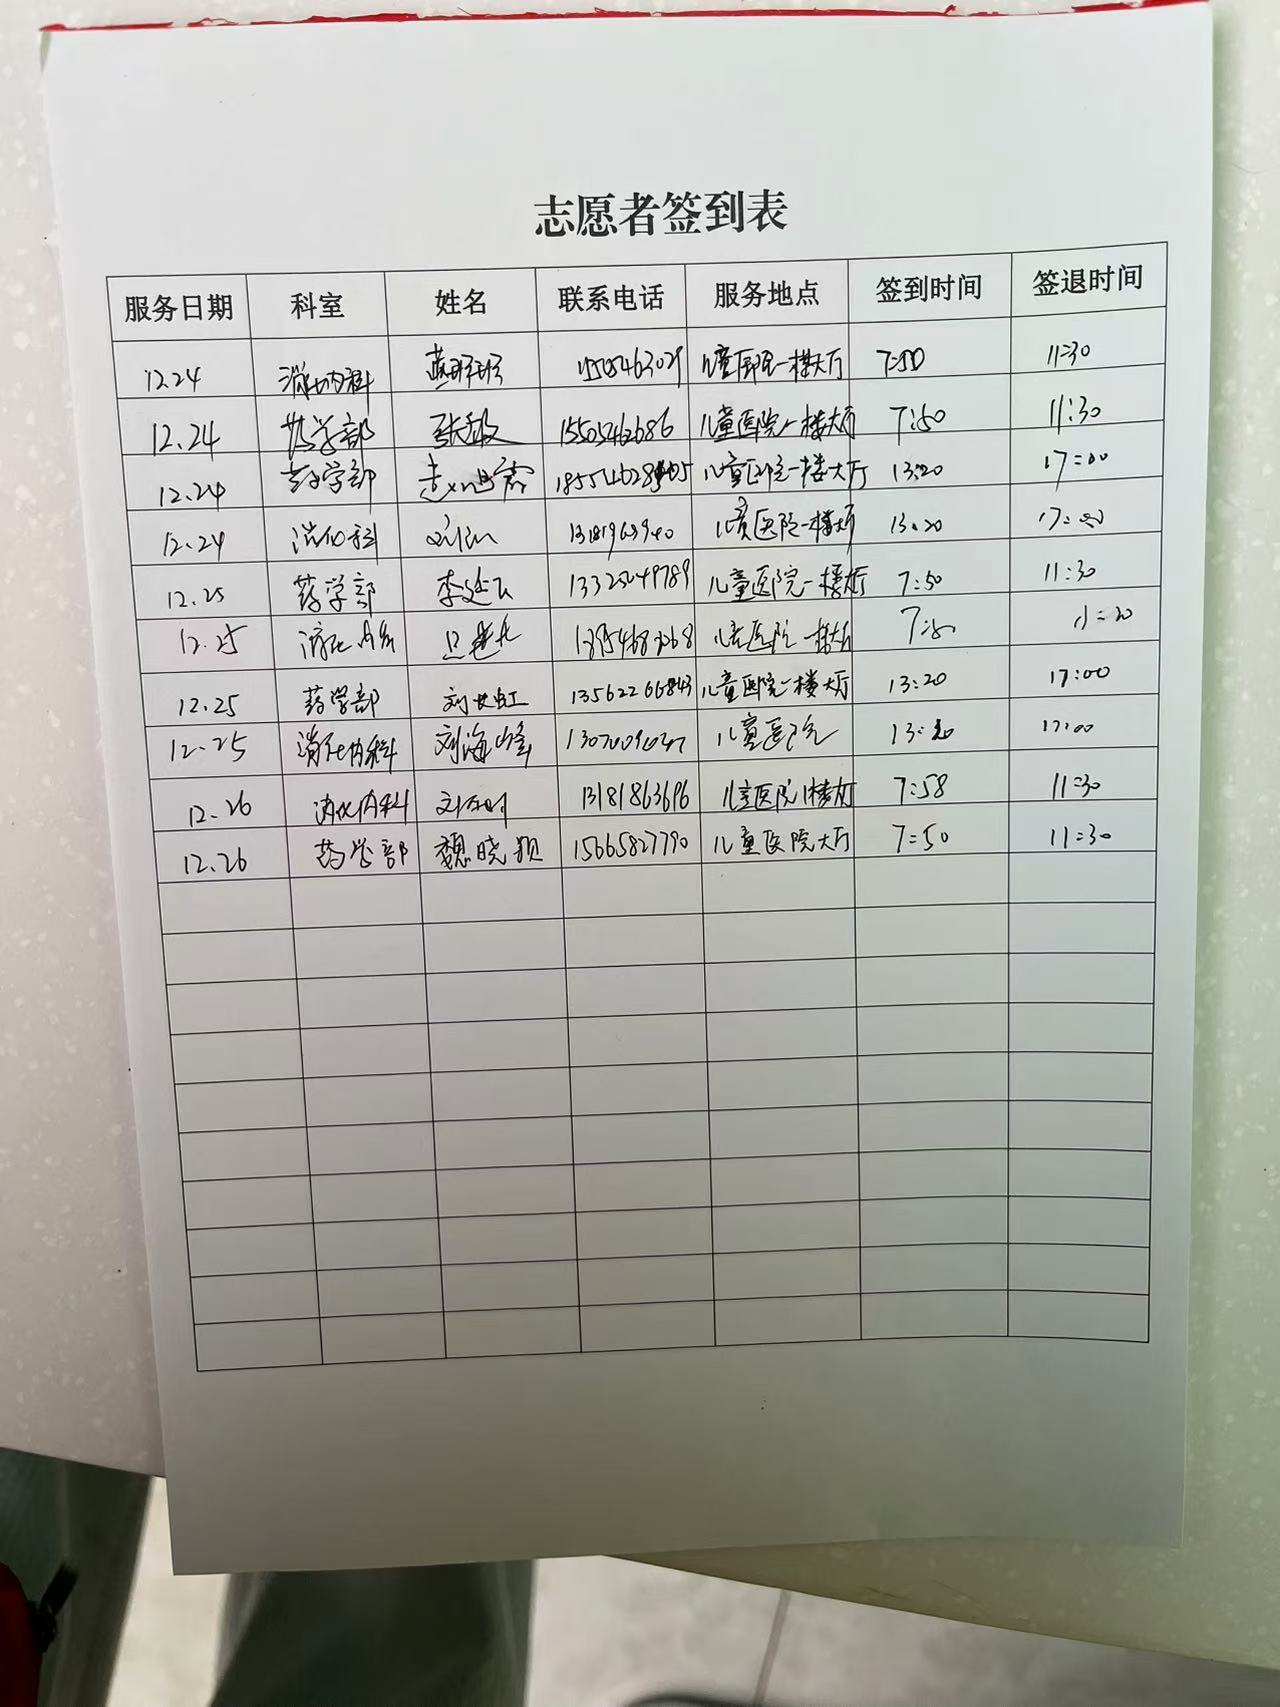 志愿者签到表
服务日期 科室 姓名 联系电话 服务地点 签到时间 签退时间
12.24 消化内科 儿童医院一楼大厅 7:50 11:30
12.24 药学部 张敏 15505462686 儿童医院一楼大厅 7:50 11:30
12.24 药学部 儿童医院一楼大厅 13:20 17:00
12.24 消化科 儿童医院一楼大厅 13:20 17:00
12.25 药学部 李延飞 13325049789 儿童医院一楼大厅 7:50 11:30
12.25 消化内科 儿童医院一楼大厅 7:50
12.25 药学部 刘长虹 13562266843 儿童医院一楼大厅 13:20 17:00
12.25 消化内科 刘海峰 儿童医院 13:20 17:00
12.26 消化内科 13181863696 儿童医院1楼大厅 7:58 11:30
12.26 药学部 魏晓颖 15665827790 儿童医院大厅 7:50 11:30